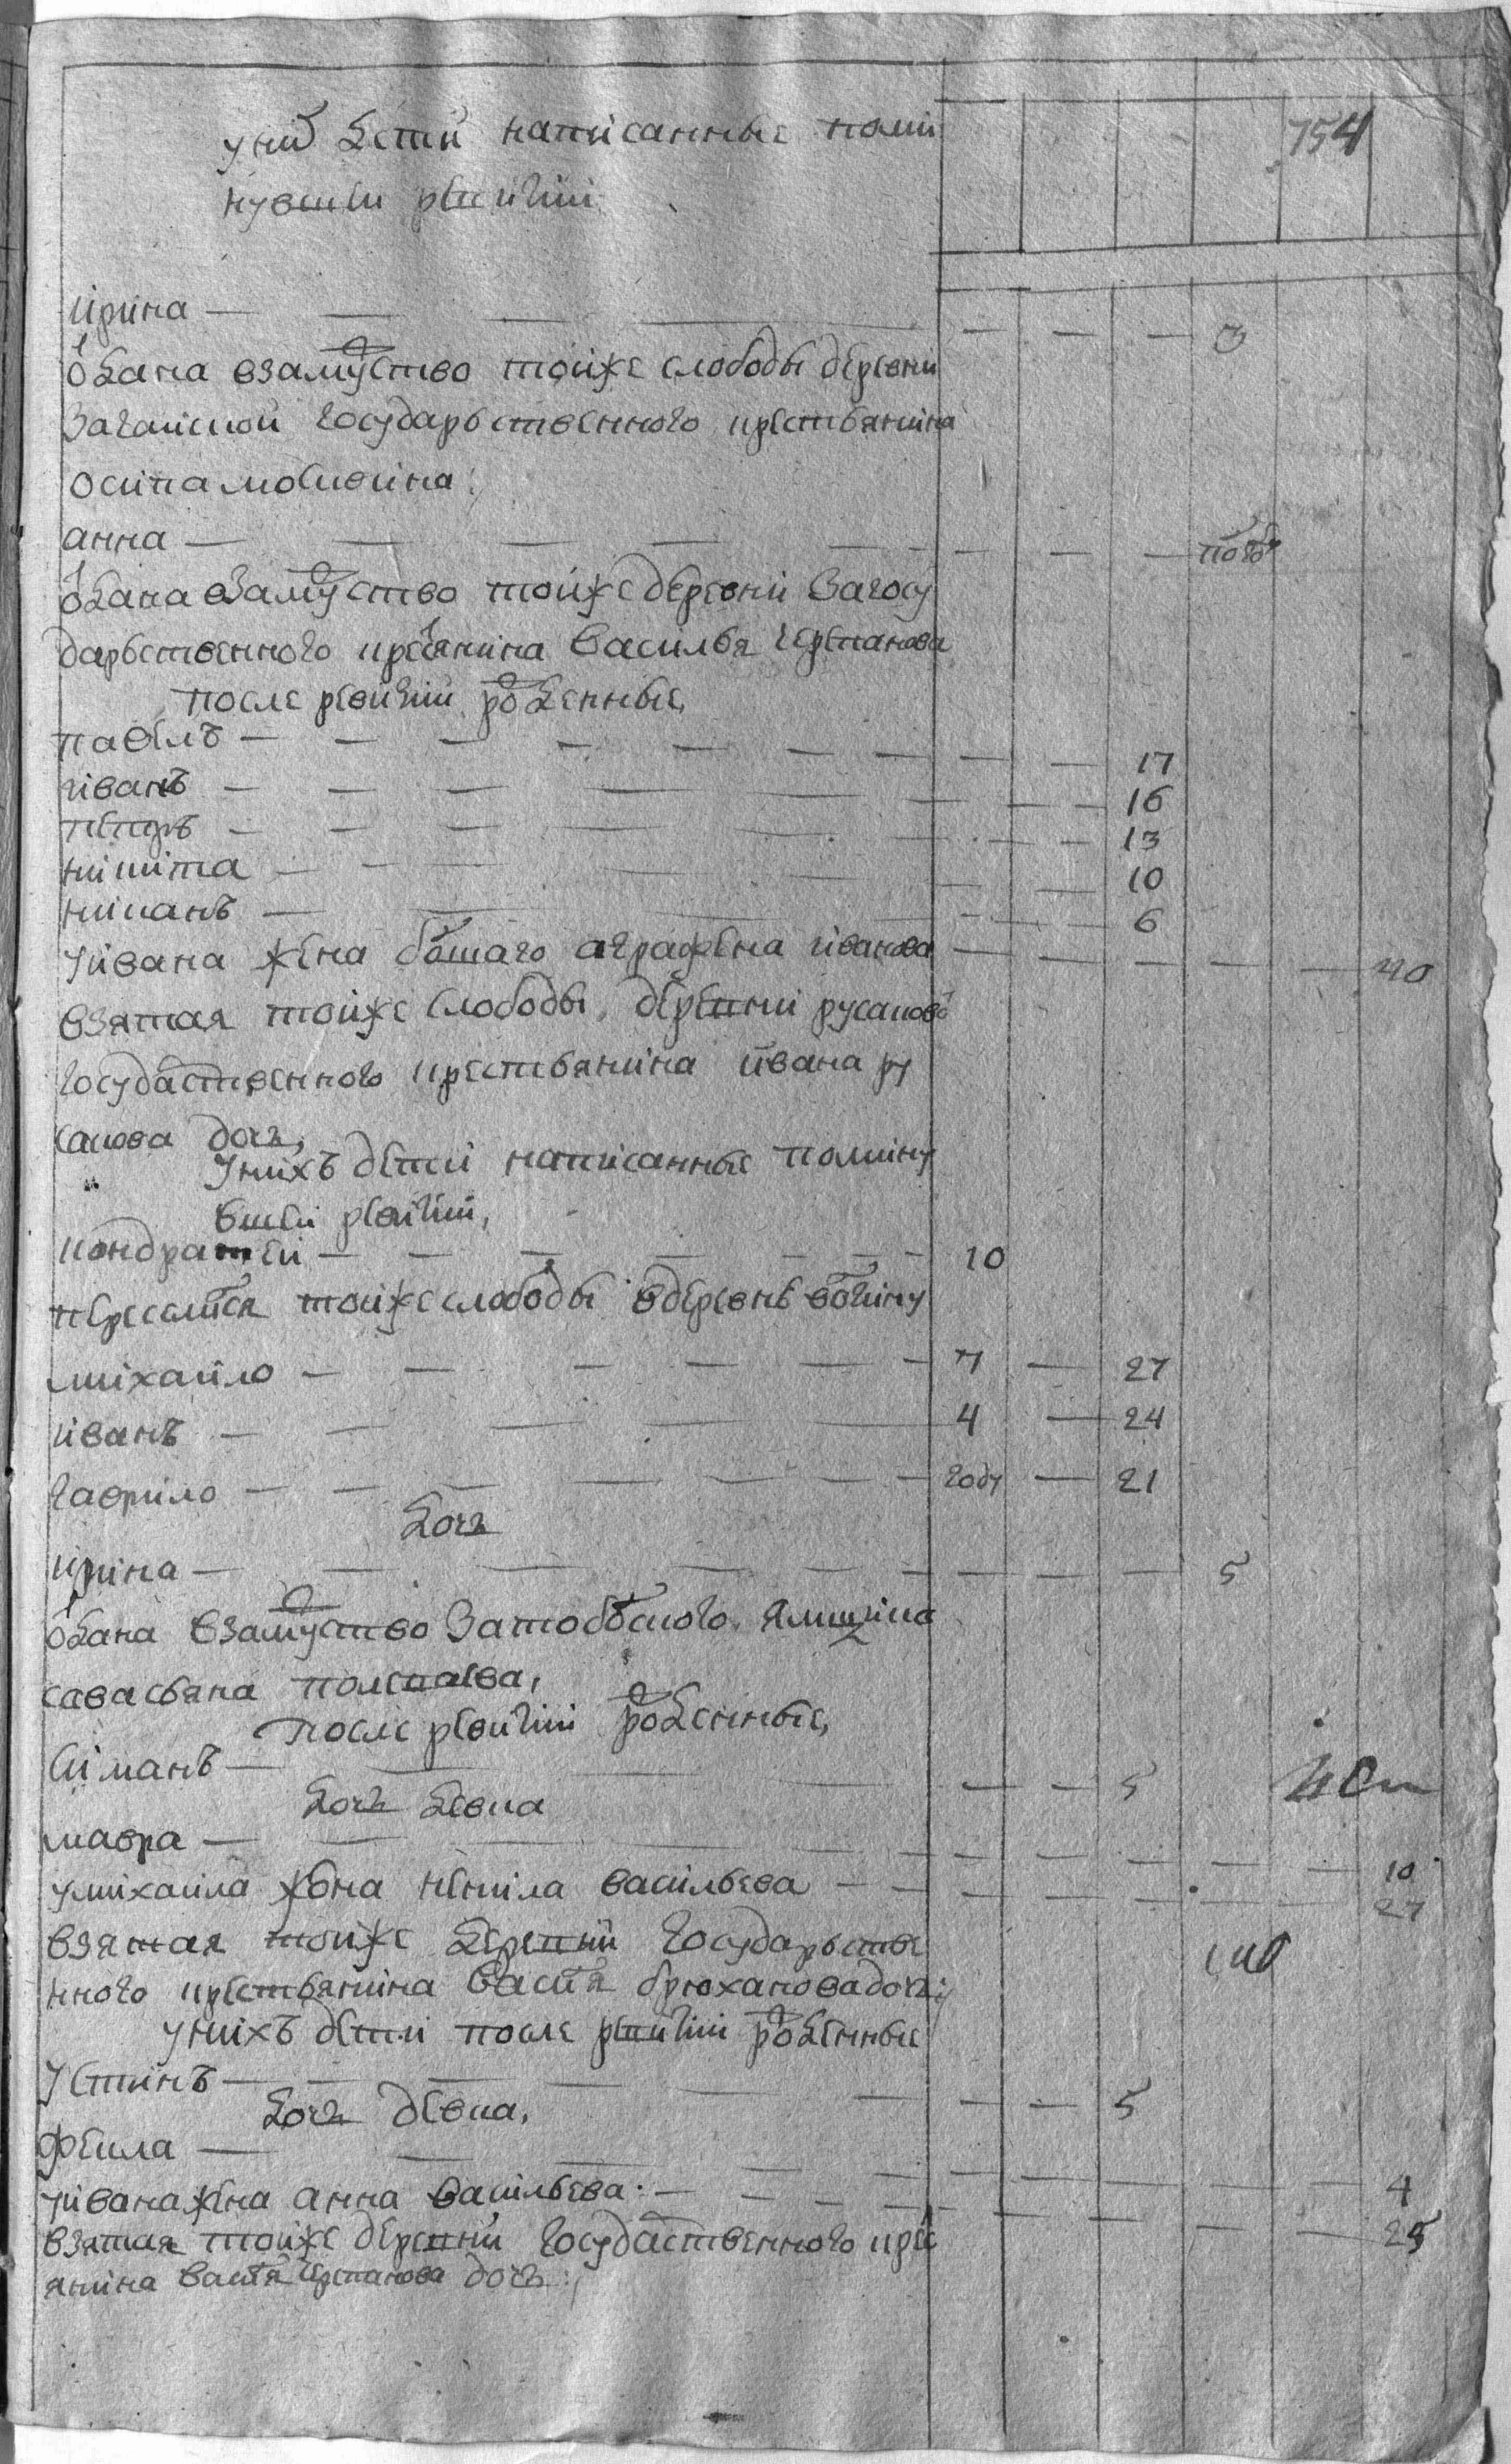 754
у них дети написанные поми
нувшеи ревизии
ирина — — — — — — — 3
одана взамуство тоиже слободы деревни
Загаискои государьственного крестьянина
осипа мосивина
анна — — — — — — — — пого
одана взамуство тоиже деревни Загосу
дарьственного кресянина василья черепанова
после ревизии рожденные,
павелъ — — — — — — — — — 17
иванъ — — — — — — — — 16
петръ — — — — — — — 13
никита — — — — — — 10
никанъ — — — — — — 6
уивана жена болшаго аграфена иванова — — — — — 40
взятая тоиже слободы, деревни русаковой
государственного крестьянина ивана ру
сакова дочь,
Унихъ детеи написанные помину
вшеи ревизии,
кондратеи — — — — — — 10
переселился тоиже слободы вдеревнь волгину
михаило — — — — — — 7 — 27
иванъ — — — — — 4 — 24
гаврило — — — — — — году — 21
дочь
ирина — — — — — — — — — 5
одана взамуство Затобольского ямщика
савасьяна
после ревизии рожденные,
симанъ — — — — — — 5
дочь девка
мавра — — — — — — — — — 10
умихаила жона ненила васильева — — — — — — 27
взятая тоиже деревни государьстве
нного крестьянина василья брюхановадочь;
унихъ дети после ревизии рожденные
Устинъ — — — — — — — 5
дочь девка,
фекла — — — — — — — — — — 4
уивана жена анна васильева. — — — — — — — 25
взятая тоиже деревни государственного крес
янина василья черепанова дочь;